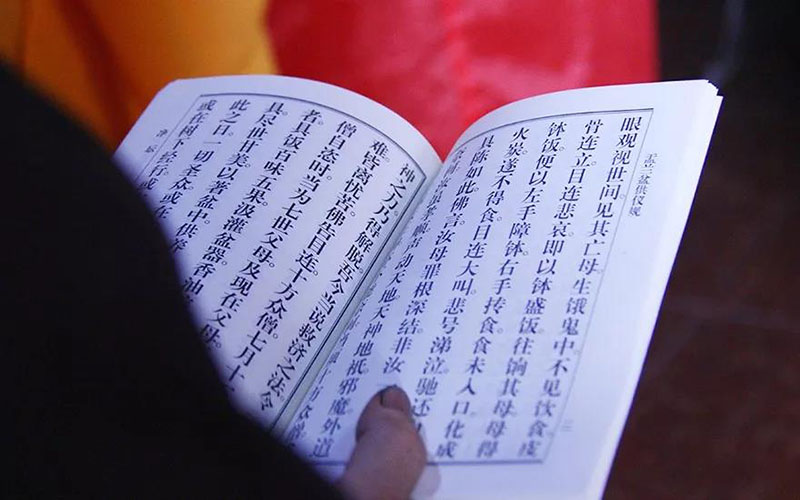 盂兰盆供仪规
眼观视世间。见其亡母生饿鬼中。不见饮食皮
骨连立。目连悲哀。即以钵盛饭往饷其母。母得
钵饭。便以左手障钵。右手抟食。食未入口。化成
火炭。遂不得食。目连大叫。悲号涕泣。驰还
具陈如此。佛言。汝母罪根深结。非汝
声动天地。天神地祇。邪魔外道
神之力。乃得解脱。吾今当说救济之法。令
难。皆离忧苦。佛告目连。十方众僧。七月十
僧自恣时。当为七世父母。及现在父母
者。具饭百味五果。汲灌盆器。香油
具。尽世甘美。以著盆中。供养
此之日。一切圣众。或在
或在树下经行。或